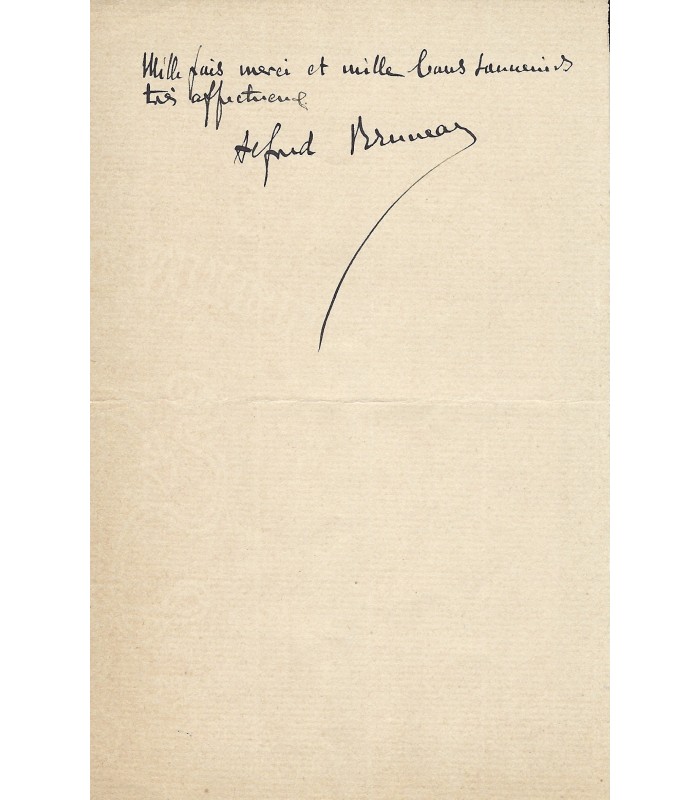 Mille fois merci et mille bons souvenirs
très affectueux
Alfred Bruneau